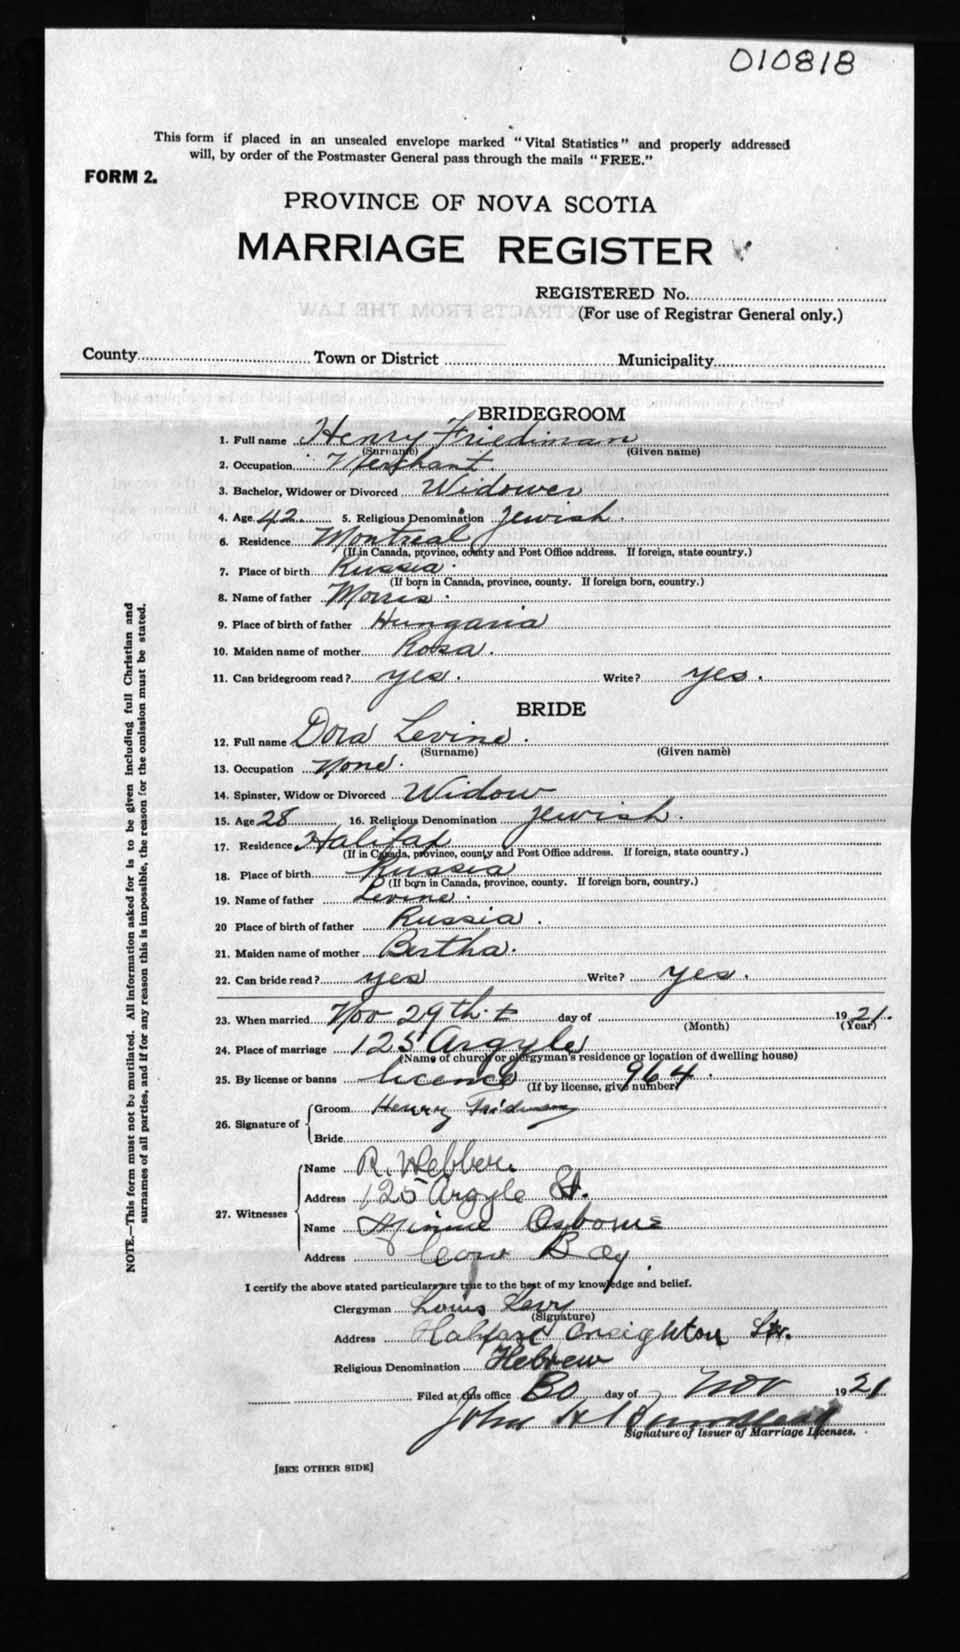 010818
This form if placed in an unsealed envelope marked "Vital Statistics" and properly addressed
will, by order of the Postmaster General pass through the mails "FREE."
FORM 2.
PROVINCE OF NOVA SCOTIA
MARRIAGE REGISTER
REGISTERED No.
(For use of Registrar General only.)
County Town or District Municipality
BRIDEGROOM
1. Full name Henry Friedman
(Surname) (Given name)
2. Occupation Merchant.
3. Bachelor, Widower or Divorced Widower
4. Age 42. 5. Religious Denomination Jewish.
6. Residence Montreal
(If in Canada, province, county and Post Office address. If foreign, state country.)
7. Place of birth Russia.
(If born in Canada, province, county. If foreign born, country.)
8. Name of father Morris.
9. Place of birth of father Hungaria
10. Maiden name of mother Rosa.
11. Can bridegroom read? yes. Write? yes.
BRIDE
12. Full name Dora Levine.
(Surname) (Given name)
13. Occupation None.
14. Spinster, Widow or Divorced Widow
15. Age 28 16. Religious Denomination Jewish.
17. Residence Halifax
(If in Canada, province, county and Post Office address. If foreign, state country.)
18. Place of birth Russia
(If born in Canada, province, county. If foreign born, country.)
19. Name of father Levine.
20 Place of birth of father Russia.
21. Maiden name of mother Bertha.
22. Can bride read? yes Write? yes.
23. When married Nov 29th day of 1921.
(Month) (Year)
24. Place of marriage 125 Argyle
(Name of church or clergyman's residence or location of dwelling house)
25. By license or banns licence 964.
(If by license, give number)
26. Signature of
Groom Henry Fridman
Bride
27. Witnesses
Name R. Webber
Address 125 Argyle St.
Name Minnie Osborne
Address Cow Bay.
I certify the above stated particulars are true to the best of my knowledge and belief.
Clergyman Louis Levy
(Signature)
Address Halifax Creighton Str.
Religious Denomination Hebrew
Filed at this office 30 day of Nov 1921
John H
Signature of Issuer of Marriage Licenses.
[SEE OTHER SIDE]
NOTE.—This form must not be mutilated. All information asked for is to be given including full Christian and
surnames of all parties, and if for any reason this is impossible, the reason for the omission must be stated.